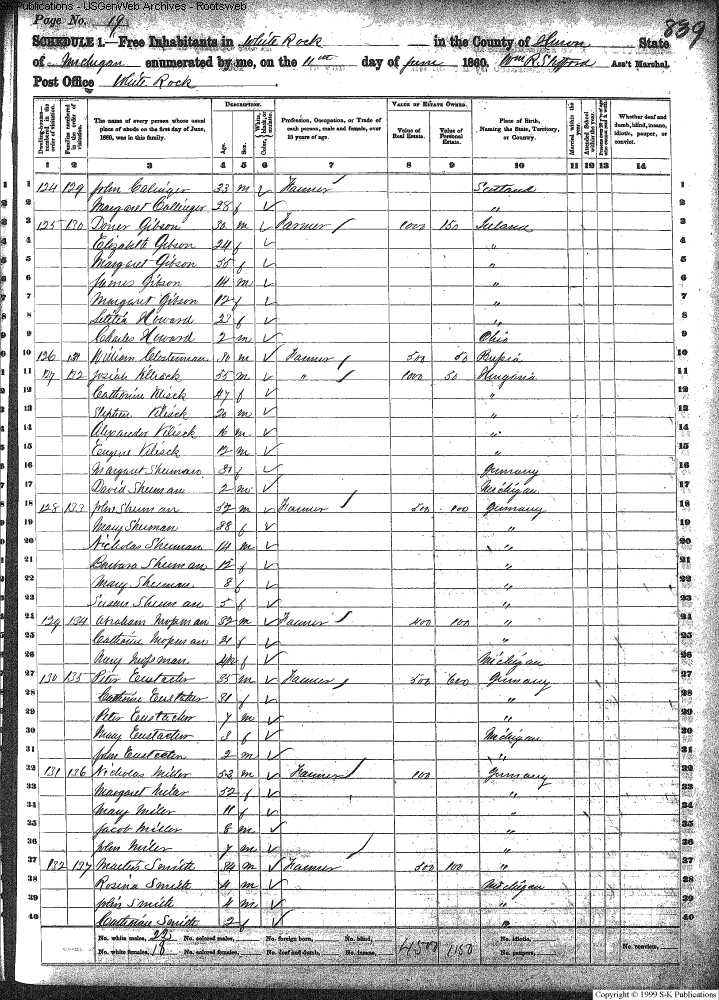 S-K Publications - USGenWeb Archives - Rootsweb
Page No. 19 839
SCHEDULE 1.—Free Inhabitants in White Rock in the County of Huron State
of Michigan enumerated by me, on the 11th day of June 1860. Wm R Stafford Ass't Marshal.
Post Office White Rock
DESCRIPTION. VALUE OF ESTATE OWNED.
Dwelling-houses—numbered in the order of visitation. Families numbered in the order of visitation. The name of every person whose usual place of abode on the first day of June, 1860, was in this family. Age. Sex. Color, White, black, or mulatto. Profession, Occupation, or Trade of each person, male and female, over 15 years of age. Value of Real Estate. Value of Personal Estate. Place of Birth, Naming the State, Territory, or Country. Married within the year. Attended School within the year. Whether deaf and dumb, blind, insane, idiotic, pauper, or convict.
1 2 3 4 5 6 7 8 9 10 11 12 13 14
1 124 129 John Calinger 33 m Farmer Scotland 1
2 Margaret Callinger 28 f " 2
3 125 130 Gibson 30 m Farmer 1000 150 Ireland 3
4 Elizabeth Gibson 24 f " 4
5 Margaret Gibson 55 f " 5
6 James Gibson 14 m " 6
7 Margaret Gibson 12 f " 7
8 Letitia Howard 23 f " 8
9 Charles Howard 2 m Ohio 9
10 126 131 William 30 m Farmer 500 50 10
11 127 132 Josiah 55 m " 1000 50 Hungaria 11
12 Catharine Kilisck 47 f " 12
13 Kilisck 20 m " 13
14 Alexander Kilisck 16 m " 14
15 Eugene Kilisck 12 m " 15
16 Margaret Sheuman 31 f Germany 16
17 David Sheuman 2 m Michigan 17
18 128 133 John Sheuman 52 m Farmer 500 100 Germany 18
19 Mary Sheuman 38 f " 19
20 Nicholas Sheuman 14 m " 20
21 Barbara Sheuman 12 f " 21
22 Mary Sheuman 8 f " 22
23 Susan Sheuman 5 f " 23
24 129 134 Abraham Mopsman 32 m Farmer 400 100 " 24
25 Catharine Mopsman 21 f " 25
26 Mary Mopsman f Michigan 26
27 130 135 Peter Eustacher 35 m Farmer 500 600 Germany 27
28 Catharine Eustacher 31 f " 28
29 Peter Eustacher 7 m " 29
30 Mary Eustacher 3 f Michigan 30
31 John Eustacher 2 m " 31
32 131 136 Nicholas Miller 53 m Farmer 100 Germany 32
33 Margaret Miller 52 f " 33
34 Mary Miller 11 f " 34
35 Jacob Miller 8 m " 35
36 John Miller 7 m " 36
37 132 137 Martin Smith 34 m Farmer 300 100 " 37
38 Rosina Smith 4 m Michigan 38
39 John Smith 4 m " 39
40 Catharine Smith 2 f " 40
No. white males, 22 No. colored males, No. foreign born, No. blind, 4500 1150 No. idiotic,
No. white females, 18 No. colored females, No. deaf and dumb, No. insane, No. paupers, No. convicts,
Copyright © 1999 S-K Publications